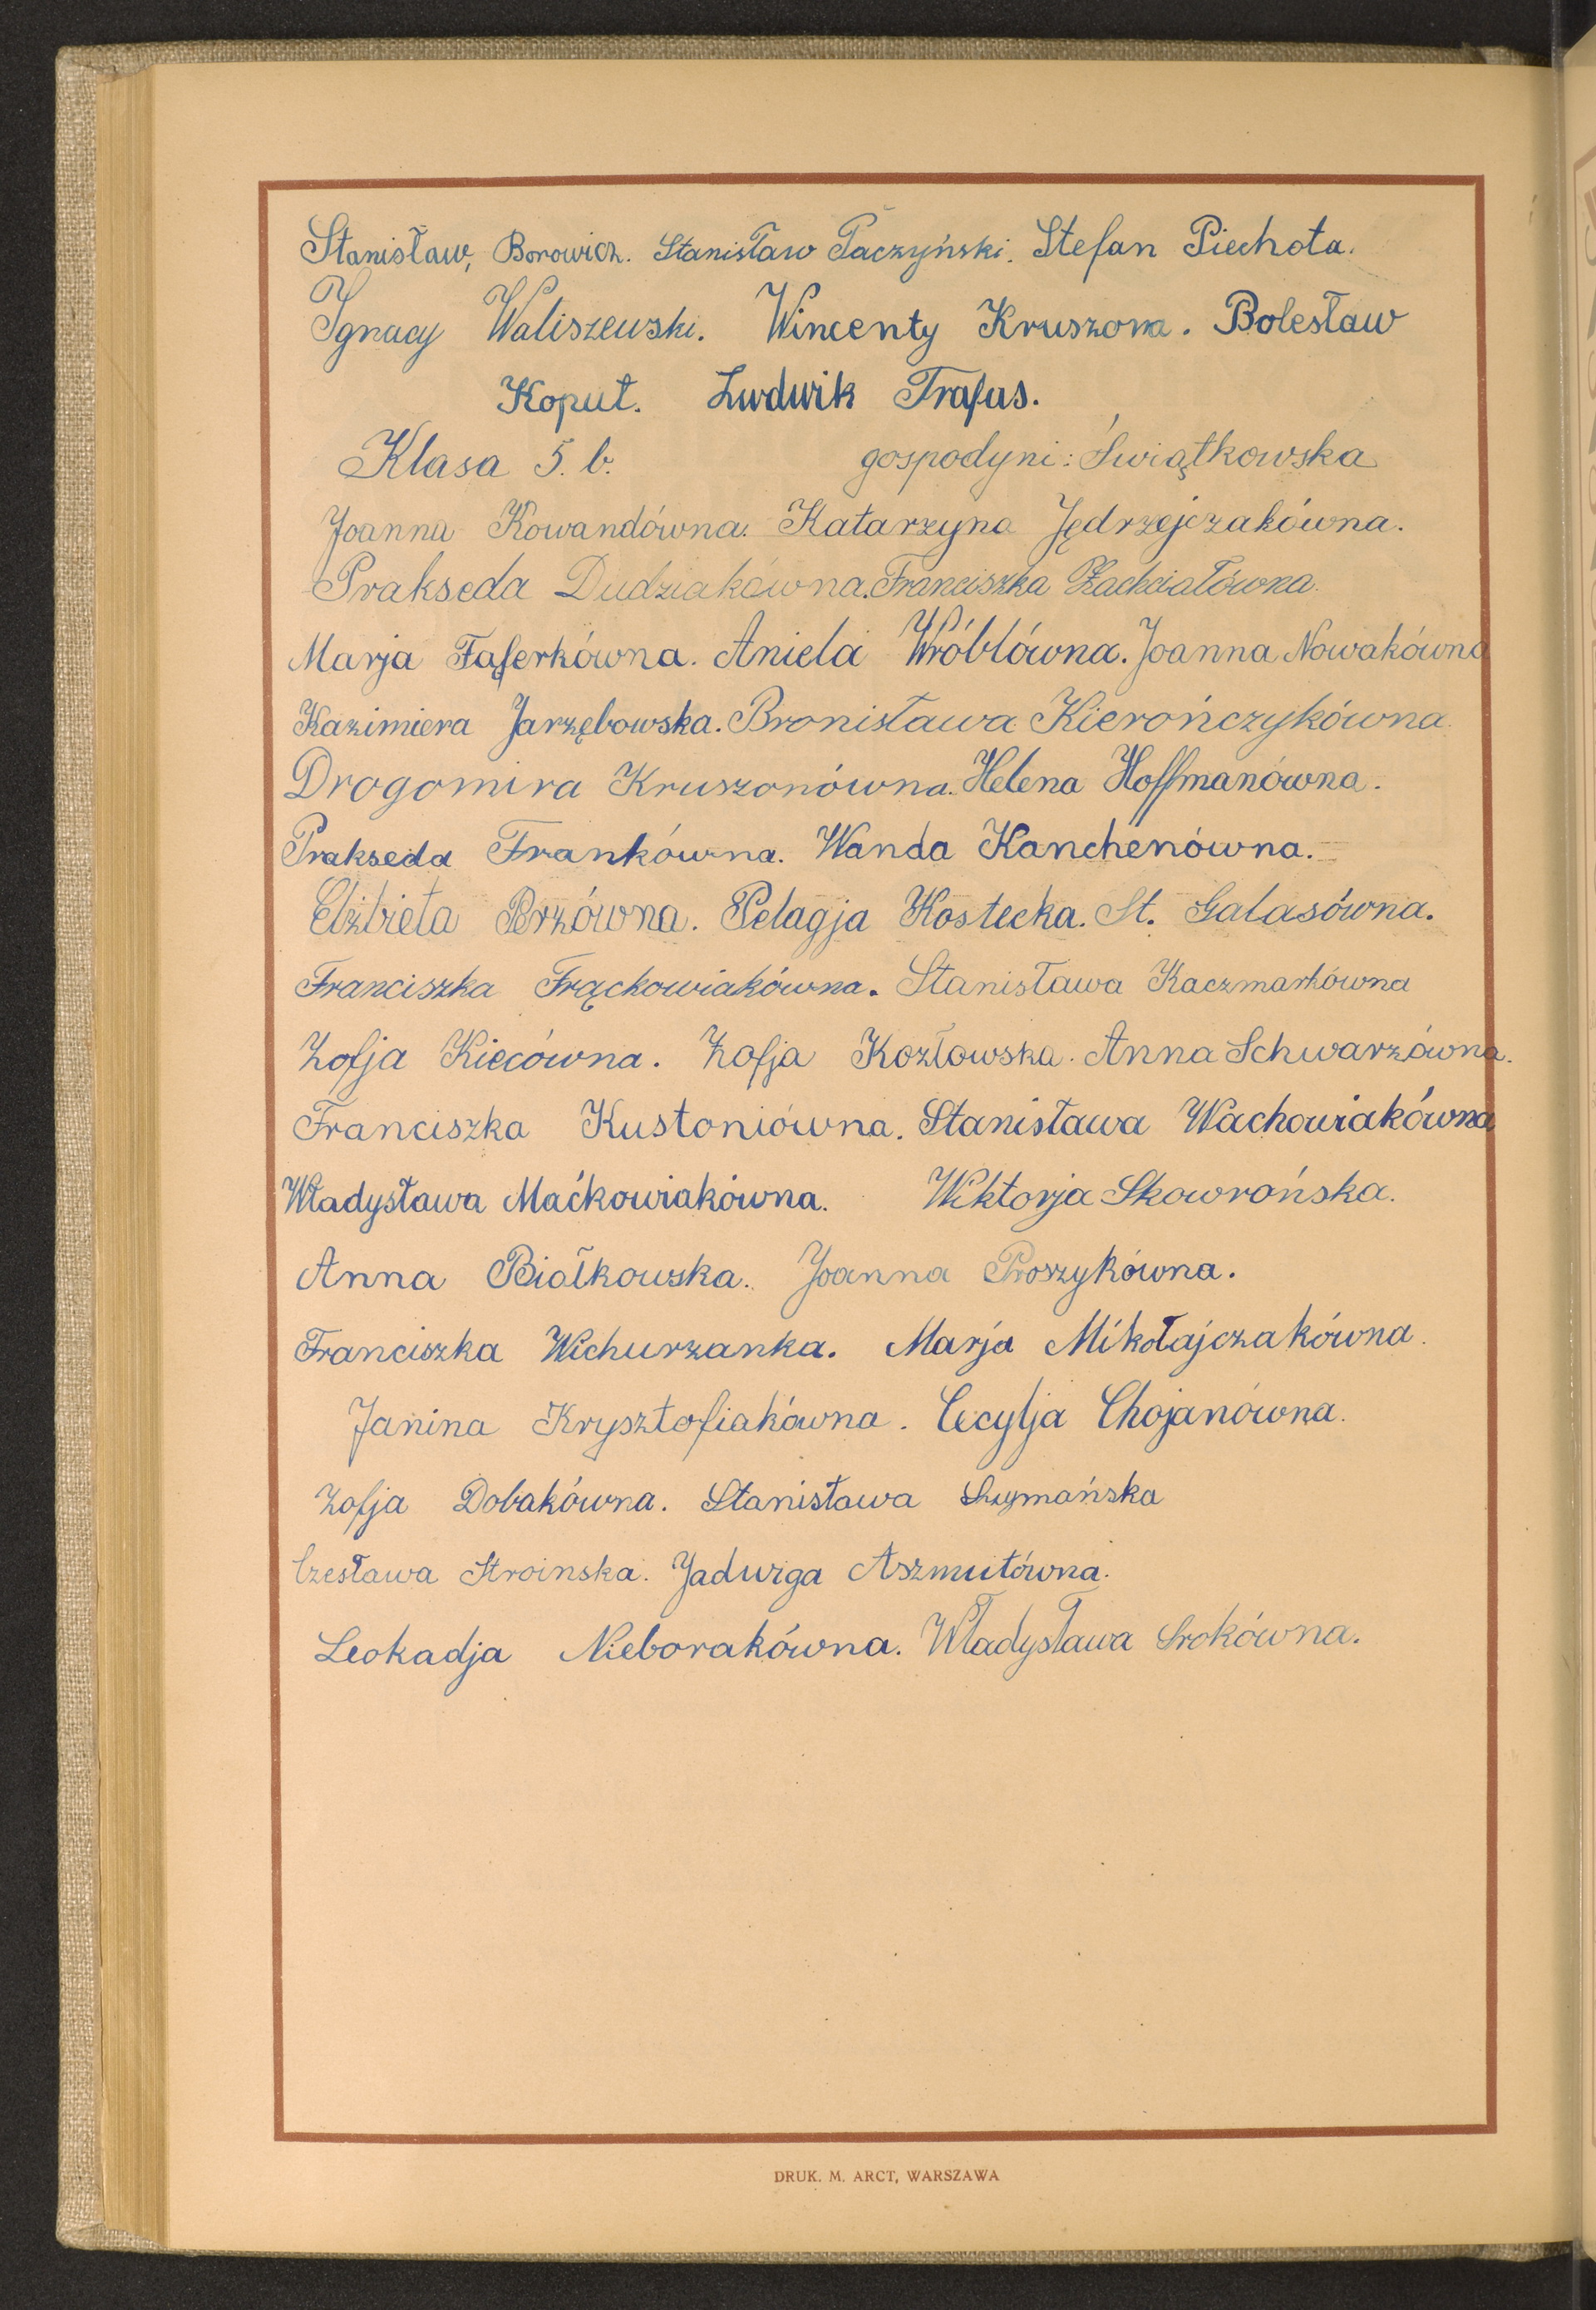 Stanisław, Borowicz. Stanisław Paczyński. Stefan Piechota.
Ignacy Waliszewski. Wincenty Kruszona. Bolesław
Koput. Ludwik Trafas.
Klasa 5. b. gospodyni: Świątkowska
Joanna Kowandówna. Katarzyna Jędrzejczakówna.
Prakseda Dudziakówna. Franciszka Zachciałówna.
Marja Fąferkówna. Aniela Wróblówna. Joanna Nowakówna
Kazimiera Jarzębowska. Bronisława Kierończykówna.
Drogomira Kruszonówna. Helena Hoffmanówna.
Prakseda Frankówna. Wanda Kanchenówna.
Elżbieta Perzówna. Pelagja Kostecka. St. Galasówna.
Franciszka Frąckowiakówna. Stanisława Kaczmarkówna
Zofja Kiecówna. Zofja Kozłowska. Anna Schwarzówna.
Franciszka Kustoniówna. Stanisława Wachowiakówna
Władysława Maćkowiakówna. Wiktorja Skowrońska.
Anna Białkowska. Joanna Proszykówna.
Franciszka Wichurzanka. Marja Mikołajczakówna.
Janina Krysztofiakówna. Cecylja Chojanówna.
Zofja Dobakówna. Stanisława Szymańska
Czesława Stroinska. Jadwiga Aszmutówna.
Leokadja Nieborakówna. Władysława Srokówna.
DRUK. M. ARCT, WARSZAWA